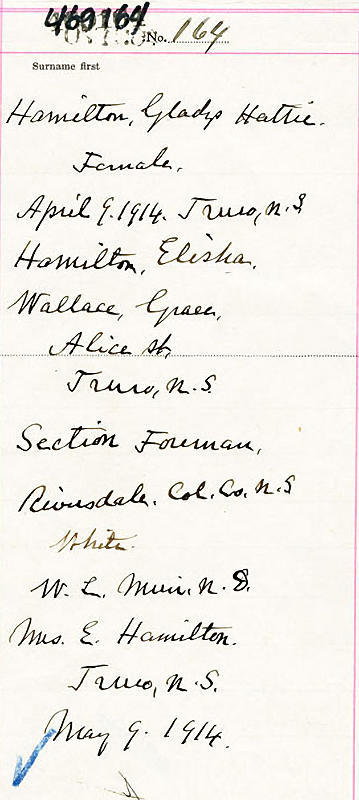 469164
No. 164
Surname first
Hamilton, Gladys Hattie.
Female.
April 9. 1914. Truro, N.S
Hamilton, Elisha.
Wallace, Grace,
Alice St,
Truro, N.S.
Section Foreman,
Riversdale. Col. Co. N.S
White.
W. L. Muir.
Mrs. E. Hamilton.
Truro, N.S.
May 9. 1914.